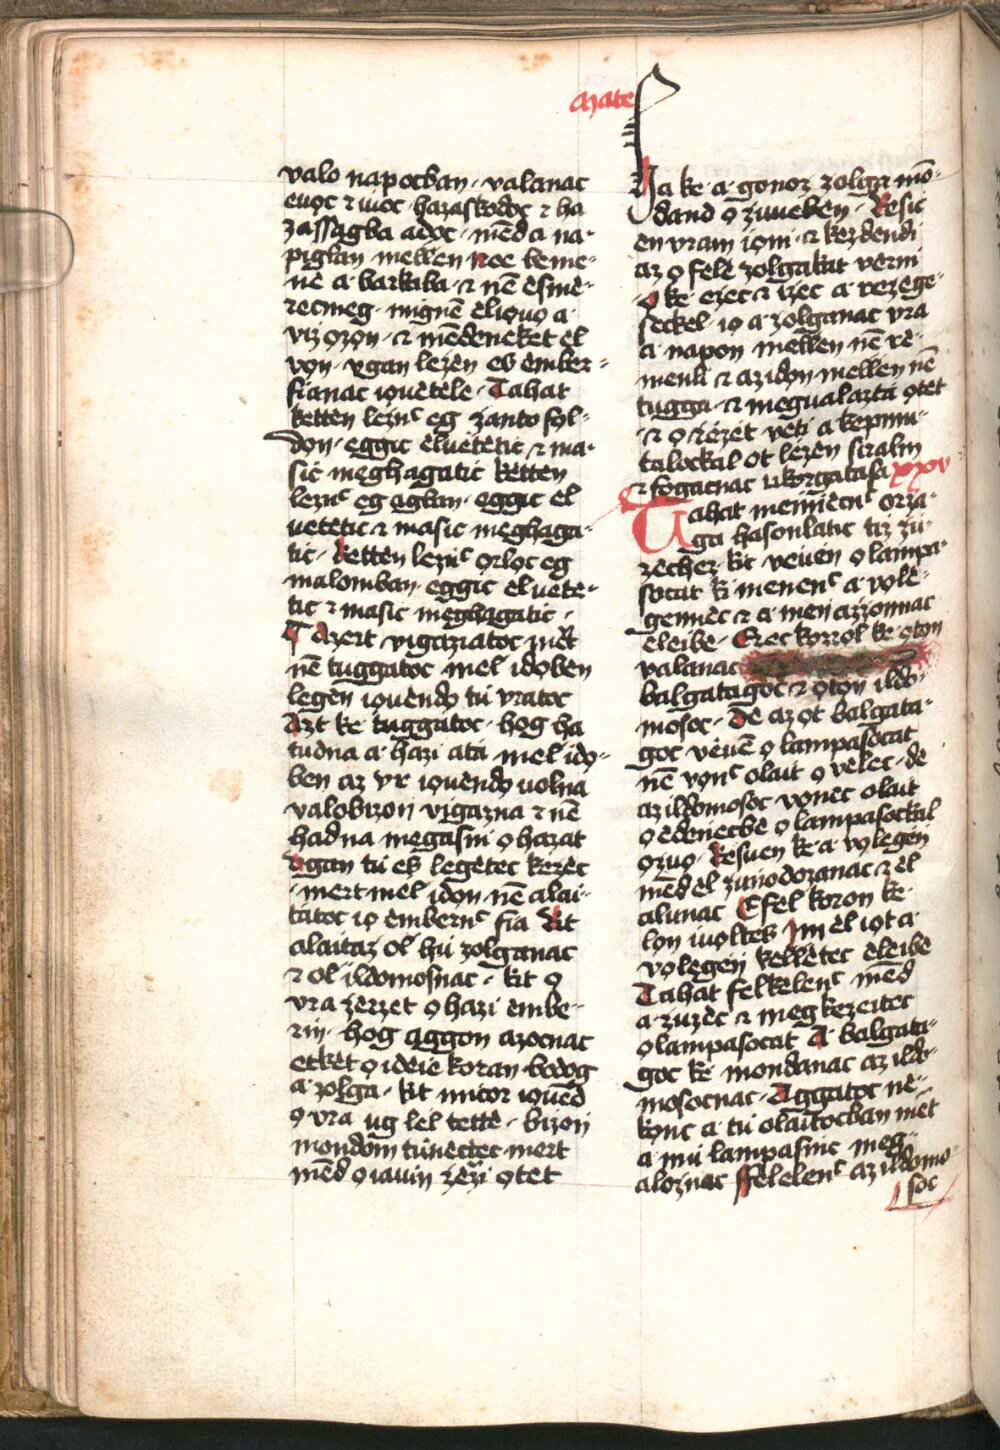 mate
valo napocban · valanac
euoc ꞇ iuoc · hazaskodoc ꞇ ha
zassagba adoc · mēd a na-
piglan mellen noe beme-
nē a barkaba · ꞇ nē esmē-
recmeg · mignē eliouo a ·
viz ozon · ꞇ mēdeneket el
von · vgan lezen es ember-
fianac iouetele · Tahat
ketten lezn̄c eg zanto fol-
don · eggic eluetetic ꞇ ma-
sic meghagatic ketten
lezn̄c eg aglan · eggic el
uetetic ꞇ masic meghaga-
tic · Ketten lezn̄c orloc eg
malomban · eggic eluete-
tic ꞇ masic meghagatic ·
Azert vigaziatoc mērt
nē tuggatoc mel idoben
legen iouendo tu vratoc
Azt ke tuggatoc · hog ha
tudna a · hazi ata mel ido-
ben az vr iouendo uolna
valobizon vigazna ꞇ nē
hadna megasni o hazat
Vgan tu es legetec kezec
· mert mel idon nē alai-
tatoc io embern̄c fia Kit
alaitaz ol hiu zolganac
ꞇ ol ildomosnac · kit o
vra zerzet o hazi embe-
rin · hog aggon azocnac
etket o ideie koran bodog
a zolga · kit micor iouēd
o vra ug lel tette · bizon
mondom tunectec mert
mēd o iauin zerzi otet
Ha ke · a · gonoz zolga mō-
dand o zuueben · Kesic
en vram ioni · ꞇ kezdendi
az o fele zolgakat verni
o ke ezec ꞇ izec a rezege-
seckel · io a · zolganac vra
a · napon mellen nē re-
menli ꞇ az idon mellen nē
tugga · ꞇ megualazta otet
· ꞇ o rezet veti a kepmu-
talockal ot lezen siralm
ꞇ fogacnac cikorgatasa xxv
Tahat menniecn̄c orza-
ga hasonlatic tiz zu-
zechez · kic veuen o lampa-
socat ki menen̄c a vole-
gennec ꞇ a men azzonnac
eleibe · Ezec kozzol ke oton
valanac
balgatagoc ꞇ oton ildo-
mosoc · De az ot balgata-
goc veuē o lampasocat
nē von̄c olait o velec · de
az ildomosoc vonec olait
o edenecbe o lampasockal
ozuo · Kesuen ke · a · volegen
mēd el zunnodozanac ꞇ el
alunac Efel koron ke ·
lon iuoltes Im el iot a ·
volegen kelletec eleibe
Tahat felkelen̄c mēd
a · zuzec ꞇ megkezeitec
o lampasocat A · balgata-
goc ke mondanac az ildo-
mosocnac · Aggatoc ne-
konc a · tu olaitocban mert
a · mu lampasinc meg ·
aloznac Felelen̄c az ildomo-
soc